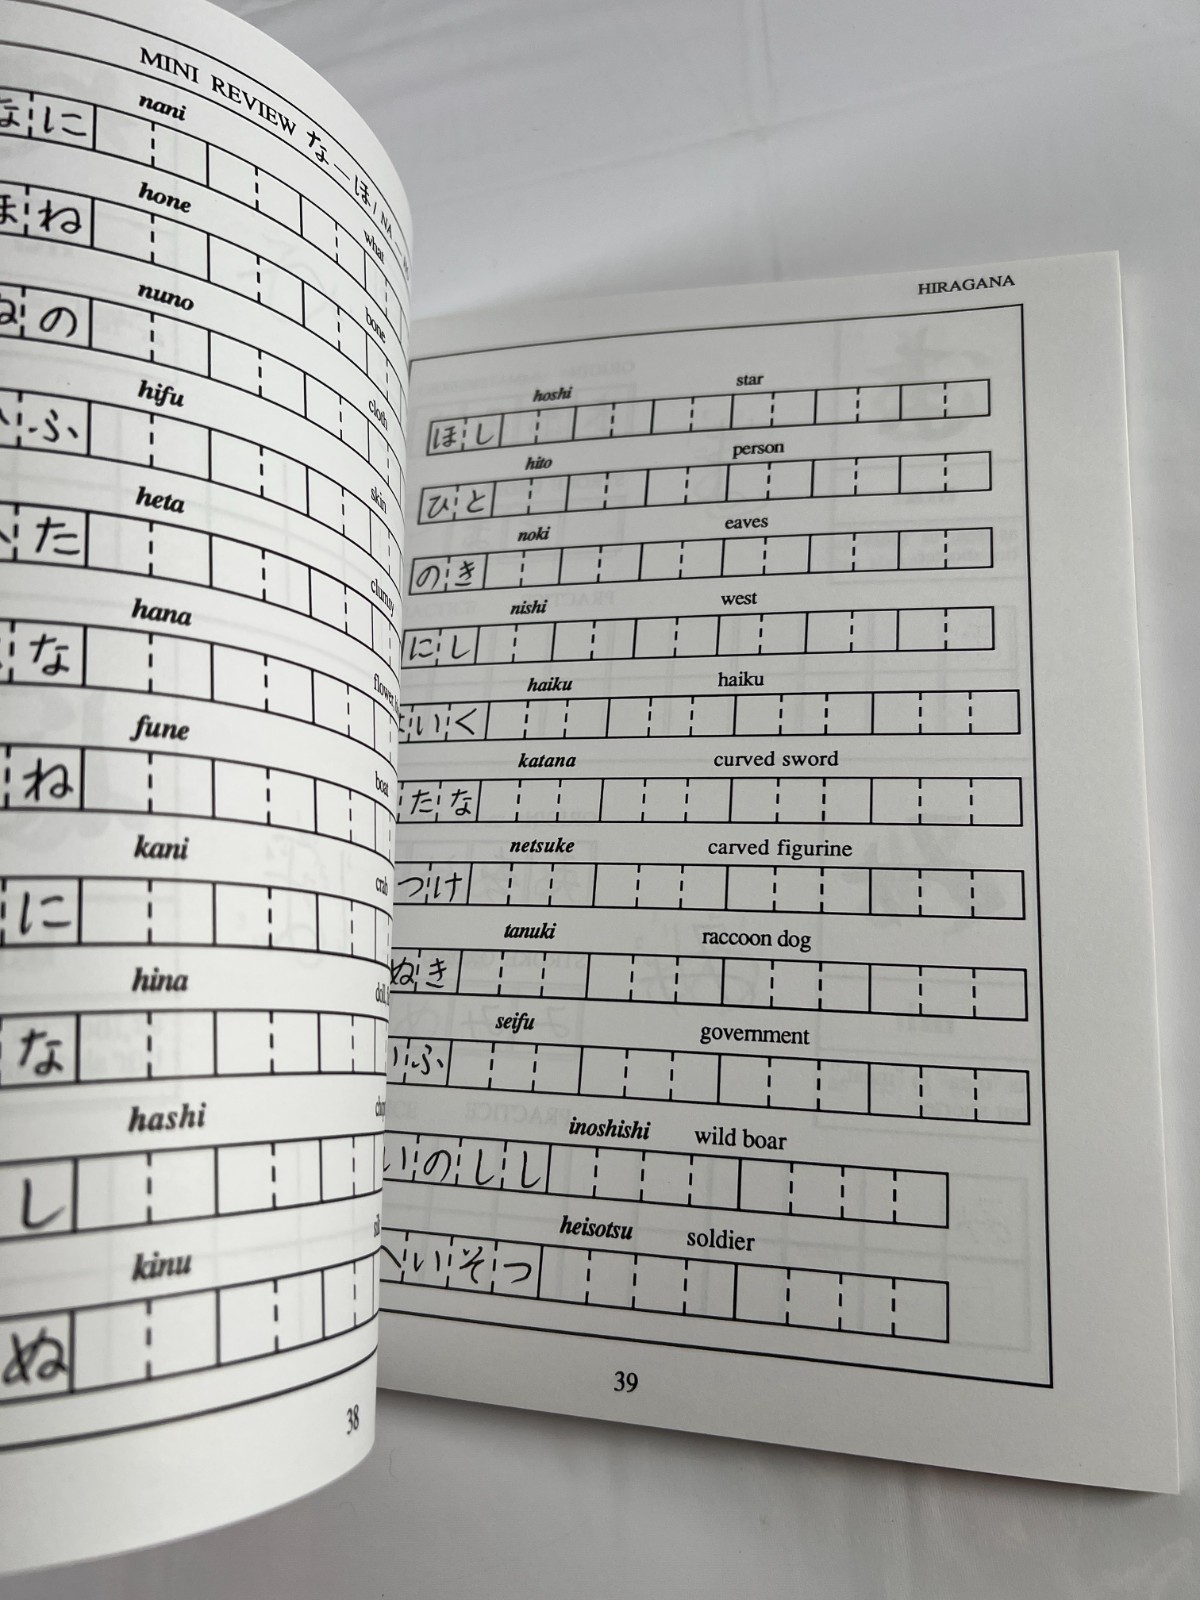 MINI REVIEW な—ほ / NA
nani what
なに
hone bone
ほね
nuno cloth
ぬの
hifu skin
ふ
heta clumsy
た
hana flower
な
fune boat
ね
kani crab
に
hina
な
hashi
し
kinu
ぬ
38
HIRAGANA
hoshi star
ほし
hito person
ひと
noki eaves
のき
nishi west
にし
haiku haiku
いく
katana curved sword
たな
netsuke carved figurine
つけ
tanuki raccoon dog
ぬき
seifu government
いふ
inoshishi wild boar
いのしし
heisotsu soldier
へいそつ
39